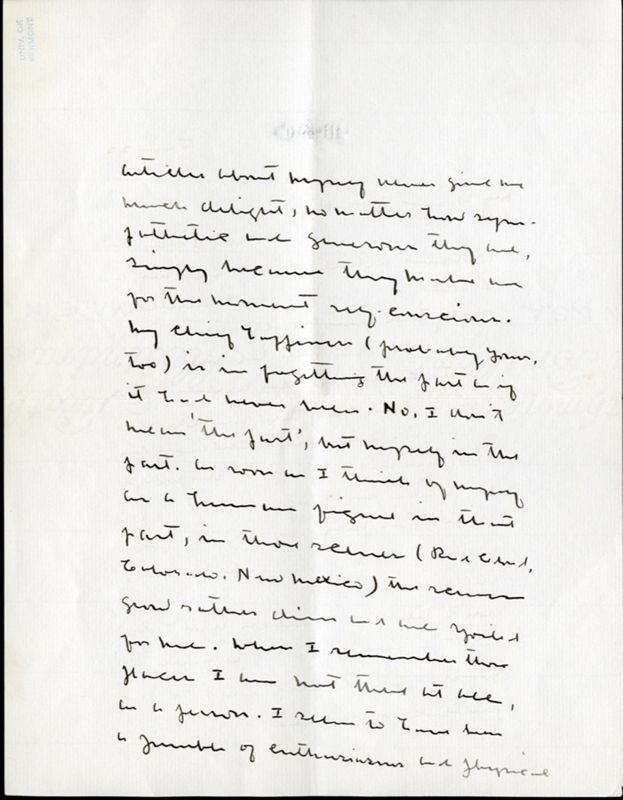 articles about myself never give me
much delight, no matter how sym-
pathetic and generous they are,
simply because they make me
for the moment self-conscious.
My chief happiness (probably yours,
too) is in forgetting the past as if
it had never been. No, I don't
mean 'the past', but myself in the
past. As soon as I think of myself
as a human figure in that
past, in those scenes (Red Cloud,
Colorado, New Mexico) the scenes
grow rather dim and are spoiled
for me. When I remember those
places I am not there at all,
as a person. I seem to have been
a bundle of enthusiasms and physical